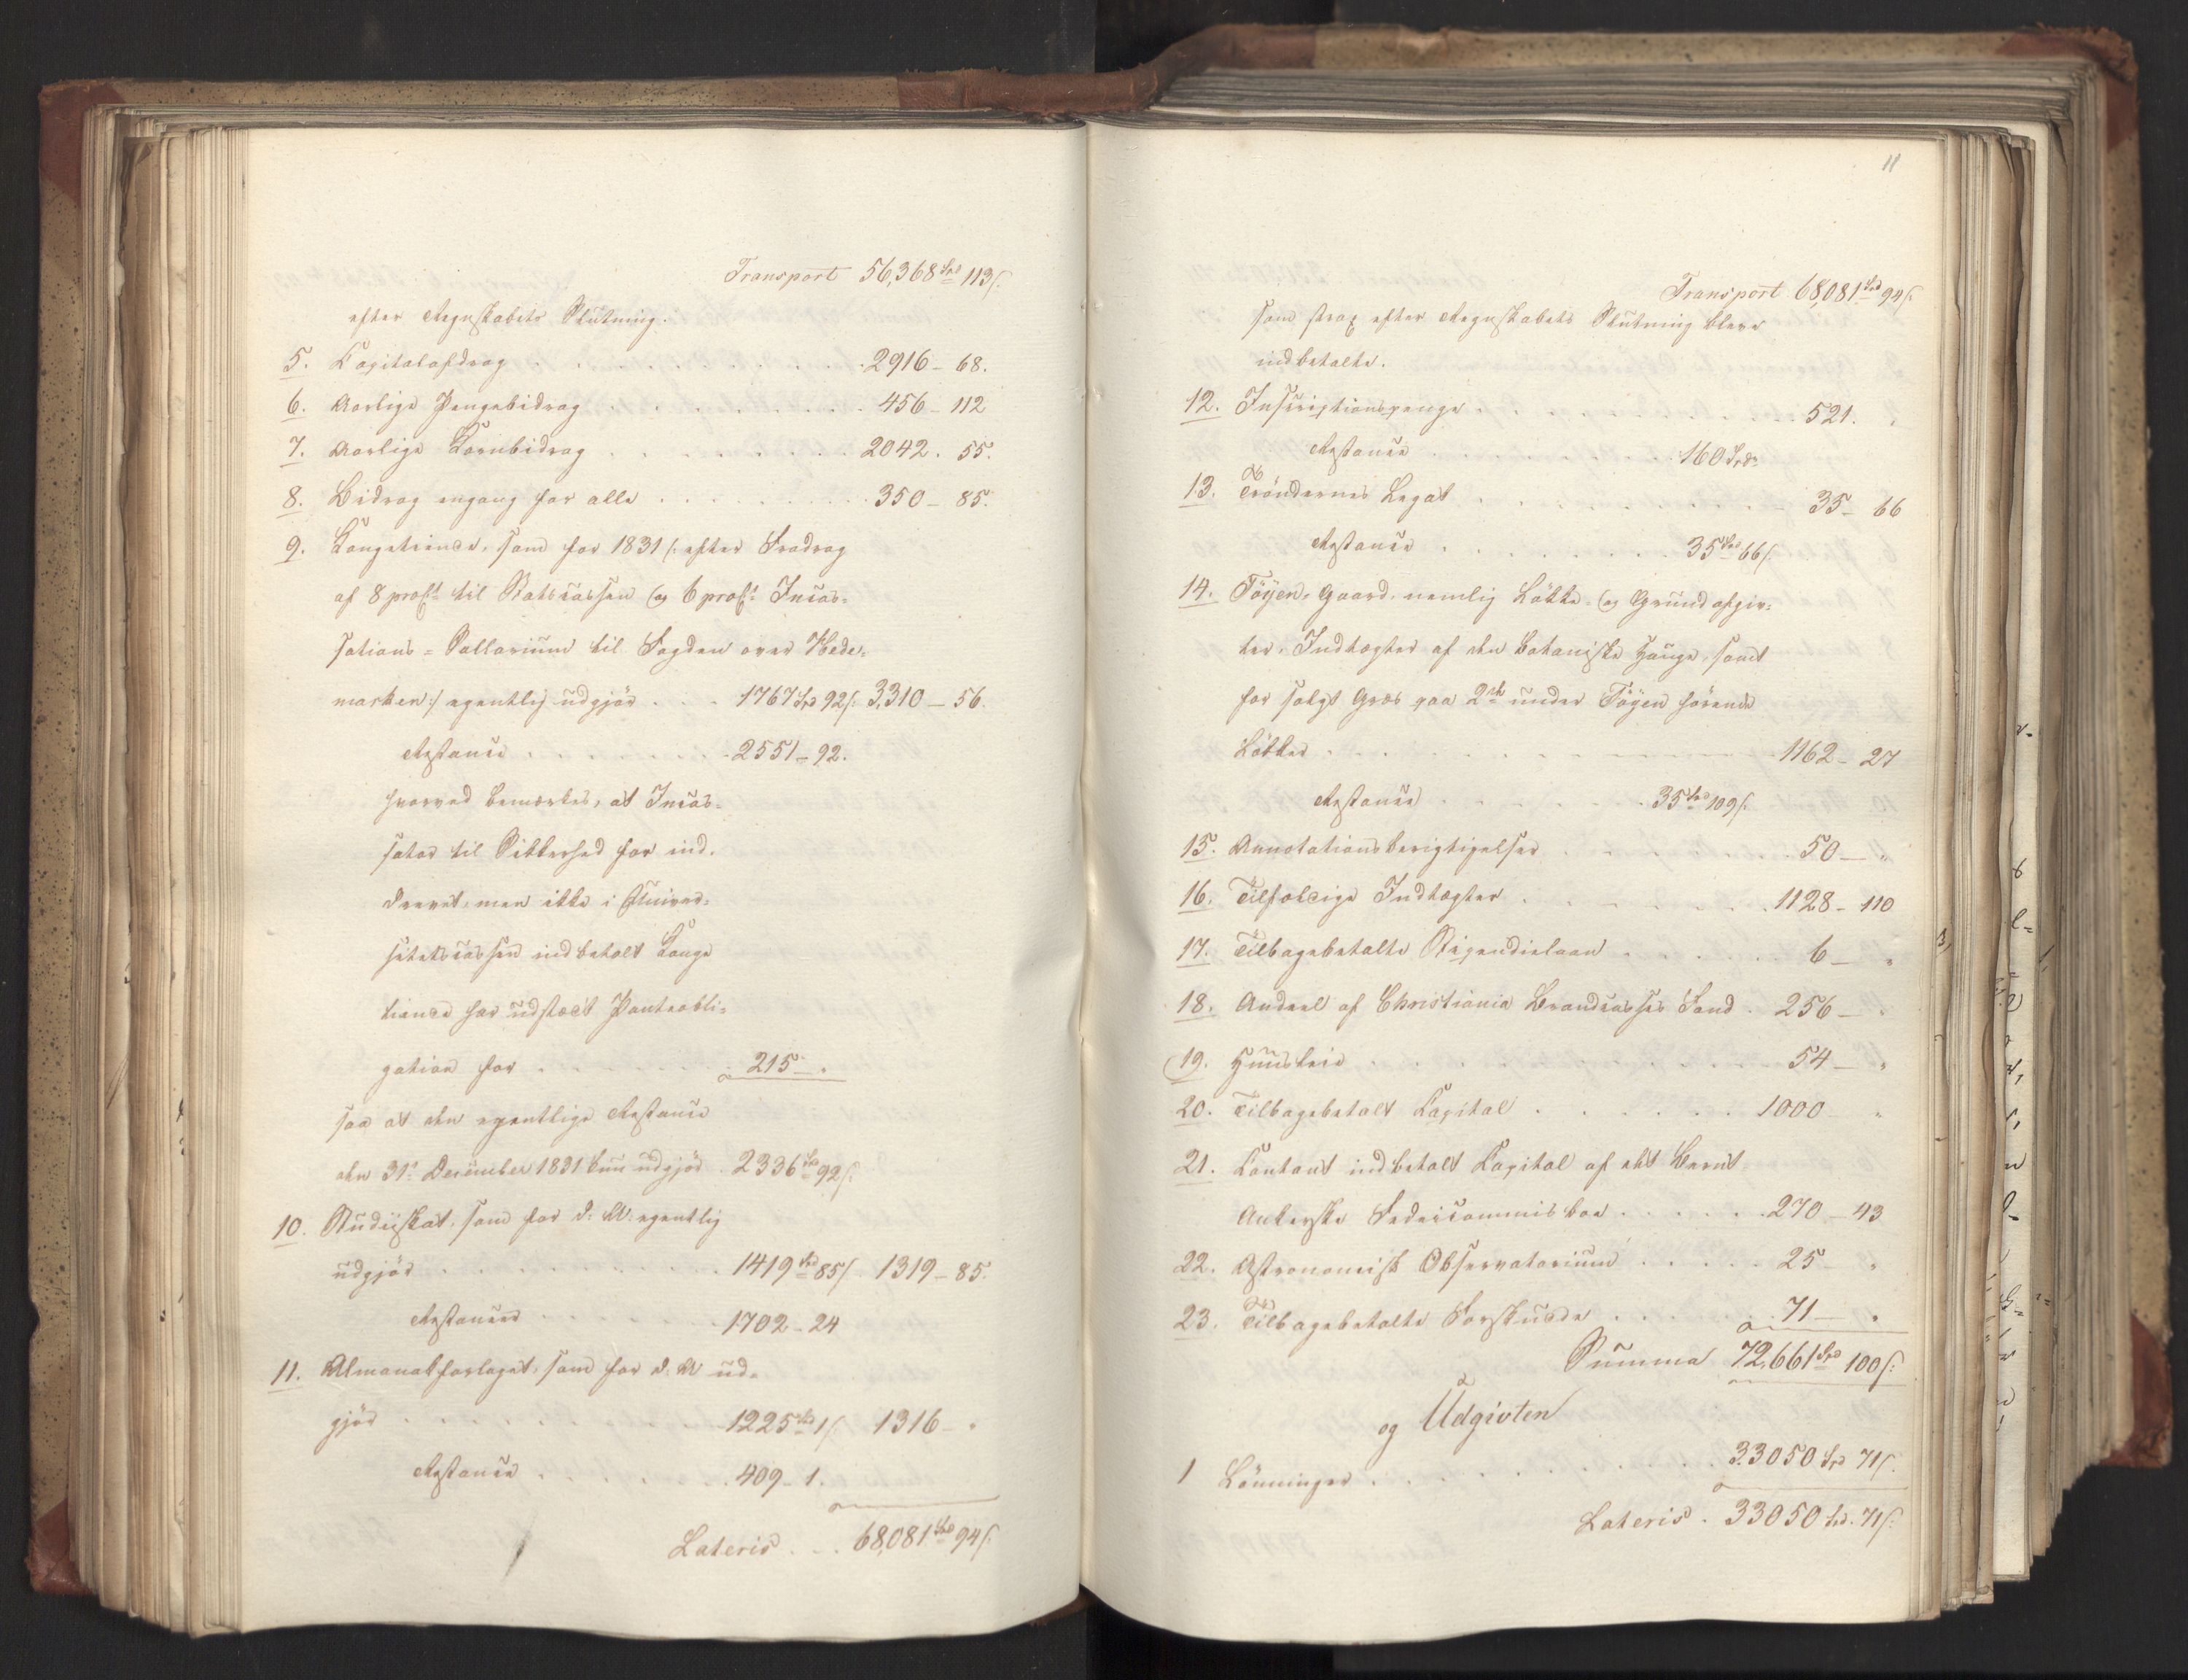 Transport 56,368 Spd 113 s.
efter Regnskabets Slutning.
5. Kapitalafdrag . . . 2916 - 68.
6. Aarlige Pengebidrag . . . 456 - 112
7. Aarlige Kornbidrag . . . 2042. 55.
8. Bidrag engang for alle . . . 350 - 85.
9. Kongetiende, som for 1831 /: efter Fradrag
af 8 proCt til Statscassen og 6 proCt Incas-
sations-Sallarium til Fogden over Hede-
marken :/ egentlig udgjør . . . 1767 Spd 92 s. 3,310 - 56.
Restance . . . 2551 - 92.
hvorved bemærkes, at Incas-
sator til Sikkerhed for ind-
drevet, men ikke i Univer-
sitetscassen indbetalt Konge
tiende har udstædt Panteobli-
gation for . . . 215 - "
saa at den egentlige Restance
den 31te December 1831 kun udgjør 2336 Spd 92 s.
10. Studiiskat, som for d: A: egentlig
udgjør . . . 1419 Spd 85 s. 1319 - 85.
Restancer . . . 1702 - 24
11. Almanakforlaget, som for d. A. ud-
gjør . . . 1225 Spd 1 s. 1316 - "
Restance . . . 409 - 1.
Lateris . . . 68,081 Spd 94 s.
11
Transport 68,081 Spd 94 s.
som strax efter Regnskabets Slutning bleve
indbetalte.
12. Inscriptionspenge . . . 521. "
Restance . . . 160 Spd.
13. Trøndernes Legat . . . 35 - 66
Restance . . . 35 Spd 66 s.
14. Töyen-Gaard, nemlig Løkke- og Grundafgiv-
ter, Indtægter af den botaniske Hauge, samt
for solgt Græs paa 2de under Töyen hørende
Løkker . . . 1162 - 27
Restance . . . 35 Spd 109 s.
15. Annotationsberigtigelser . . . 50 - "
16. Tilfældige Indtægter . . . 1128 - 110
17. Tilbagebetalte Stipendielaan . . . 6 - "
18. Andeel af Christiania Brandcasses Fond . 256 - "
19. Huusleie . . . 54 - "
20. Tilbagebetalt Kapital . . . 1000 - "
21. Contant indbetalt Kapital af det Bernt
Ankerske Fideicommisboe . . . 270 - 43
22. Astronomisk Observatorium . . . 25 - "
23. Tilbagebetalte Forskudde . . . 71 - "
Summa 72,661 Spd 100 s.
og Udgivten
1 Lønninger . . . 33050 Spd 71 s.
Lateris . 33050 Spd. 71 s.